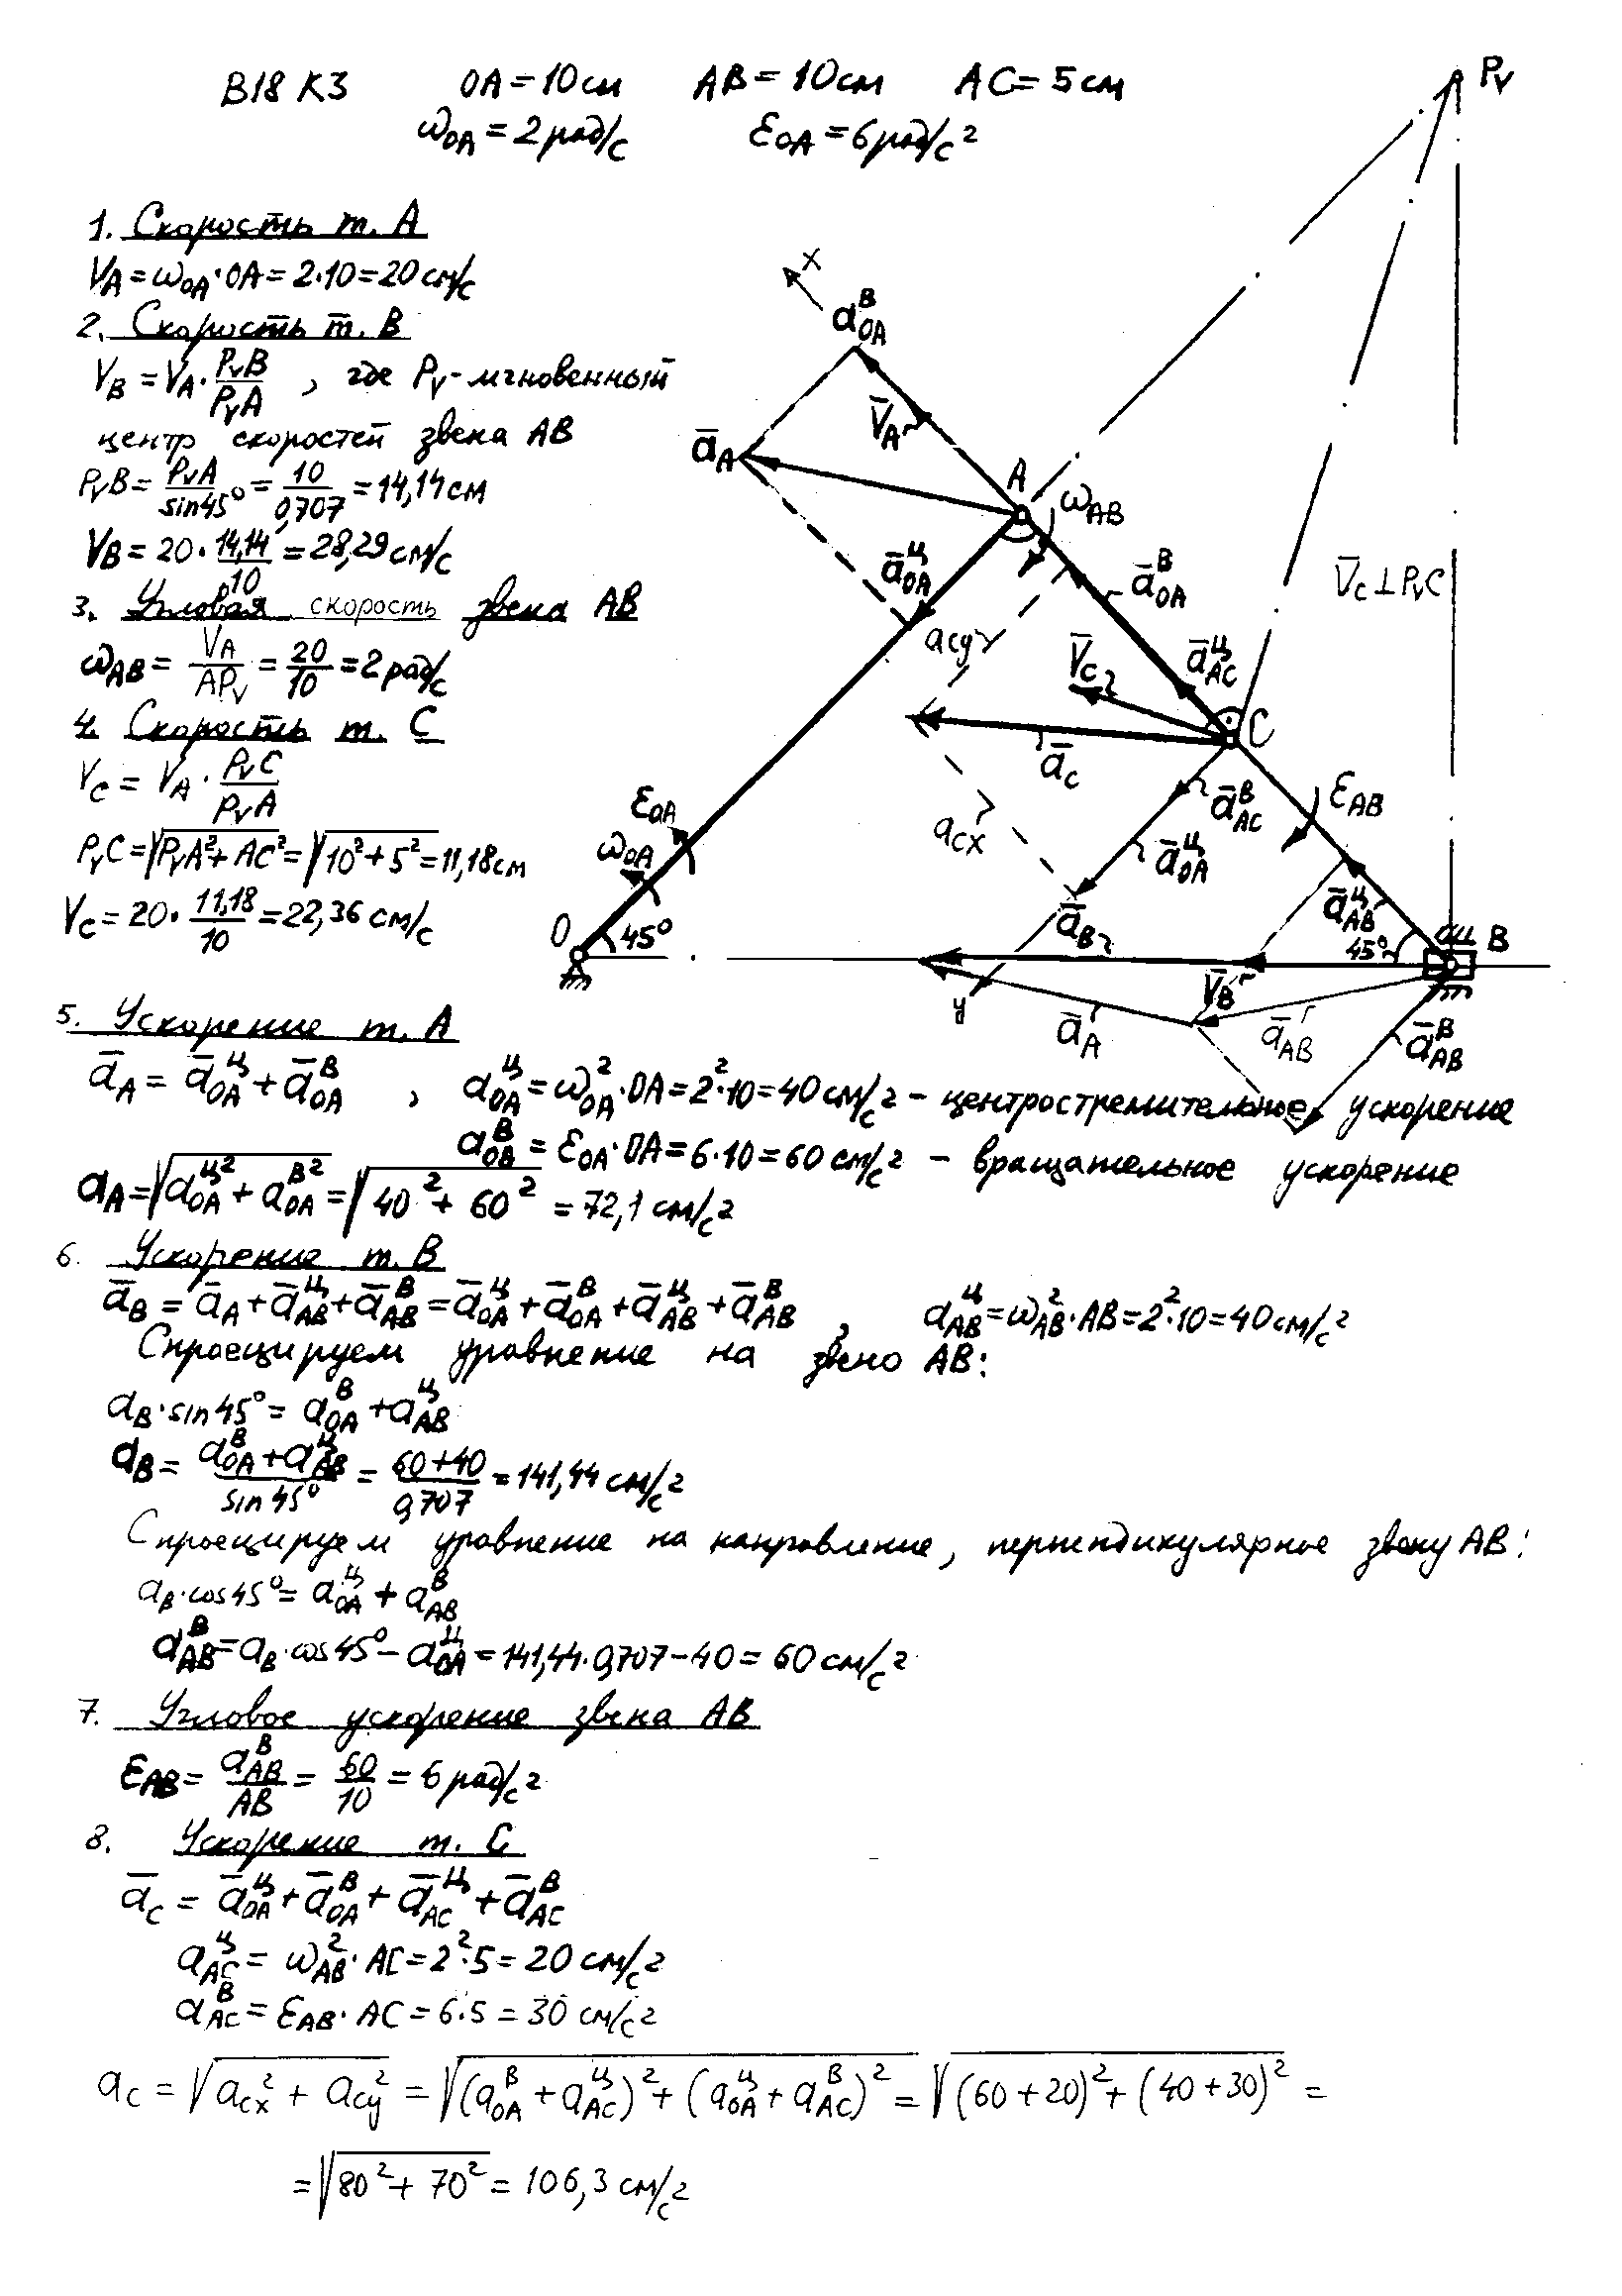 В18 К3 OA = 10 см AB = 10 см AC = 5 см
ω_OA = 2 рад/с ε_OA = 6 рад/с²
1. Скорость т. A
V_A = ω_OA · OA = 2·10 = 20 см/с
2. Скорость т. B
V_B = V_A · P_vB / P_vA , где P_v - мгновенный
центр скоростей звена AB
P_vB = P_vA / sin45° = 10 / 0,707 = 14,14 см
V_B = 20 · 14,14 / 10 = 28,29 см/с
3. Угловая скорость звена AB
ω_AB = V_A / AP_v = 20 / 10 = 2 рад/с
4. Скорость т. C
V_C = V_A · P_vC / P_vA
P_vC = √(P_vA² + AC²) = √(10² + 5²) = 11,18 см
V_C = 20 · 11,18 / 10 = 22,36 см/с
P_v
x
a^в_OA
V̄_A
ā_A
A
ω_AB
ā^ц_OA
ā^в_OA
V̄_C ⊥ P_vC
a_cy
V̄_C
ā^ц_AC
C
ā_C
ε_AB
ā^в_AC
ε_OA
a_cx
ā^ц_OA
ω_OA
O
45°
ā_B
ā^ц_AB
45°
B
y
V̄_B
ā_A
ā_AB
ā^в_AB
5. Ускорение т. A
ā_A = ā^ц_OA + ā^в_OA , a^ц_OA = ω²_OA · OA = 2²·10 = 40 см/с² - центростремительное ускорение
a^в_OB = ε_OA · OA = 6·10 = 60 см/с² - вращательное ускорение
a_A = √(a^ц²_OA + a^в²_OA) = √(40² + 60²) = 72,1 см/с²
6. Ускорение т. B
ā_B = ā_A + ā^ц_AB + ā^в_AB = ā^ц_OA + ā^в_OA + ā^ц_AB + ā^в_AB , a^ц_AB = ω²_AB · AB = 2²·10 = 40 см/с²
Спроецируем уравнение на звено AB:
a_B · sin45° = a^в_OA + a^ц_AB
a_B = (a^в_OA + a^ц_AB) / sin45° = (60+40) / 0,707 = 141,44 см/с²
Спроецируем уравнение на направление, перпендикулярное звену AB:
a_B · cos45° = a^ц_OA + a^в_AB
a^в_AB = a_B · cos45° - a^ц_OA = 141,44·0,707 - 40 = 60 см/с²
7. Угловое ускорение звена AB
ε_AB = a^в_AB / AB = 60 / 10 = 6 рад/с²
8. Ускорение т. C
ā_C = ā^ц_OA + ā^в_OA + ā^ц_AC + ā^в_AC
a^ц_AC = ω²_AB · AC = 2²·5 = 20 см/с²
a^в_AC = ε_AB · AC = 6·5 = 30 см/с²
a_C = √(a_cx² + a_cy²) = √((a^в_OA + a^ц_AC)² + (a^ц_OA + a^в_AC)²) = √((60+20)² + (40+30)²) =
= √(80² + 70²) = 106,3 см/с²